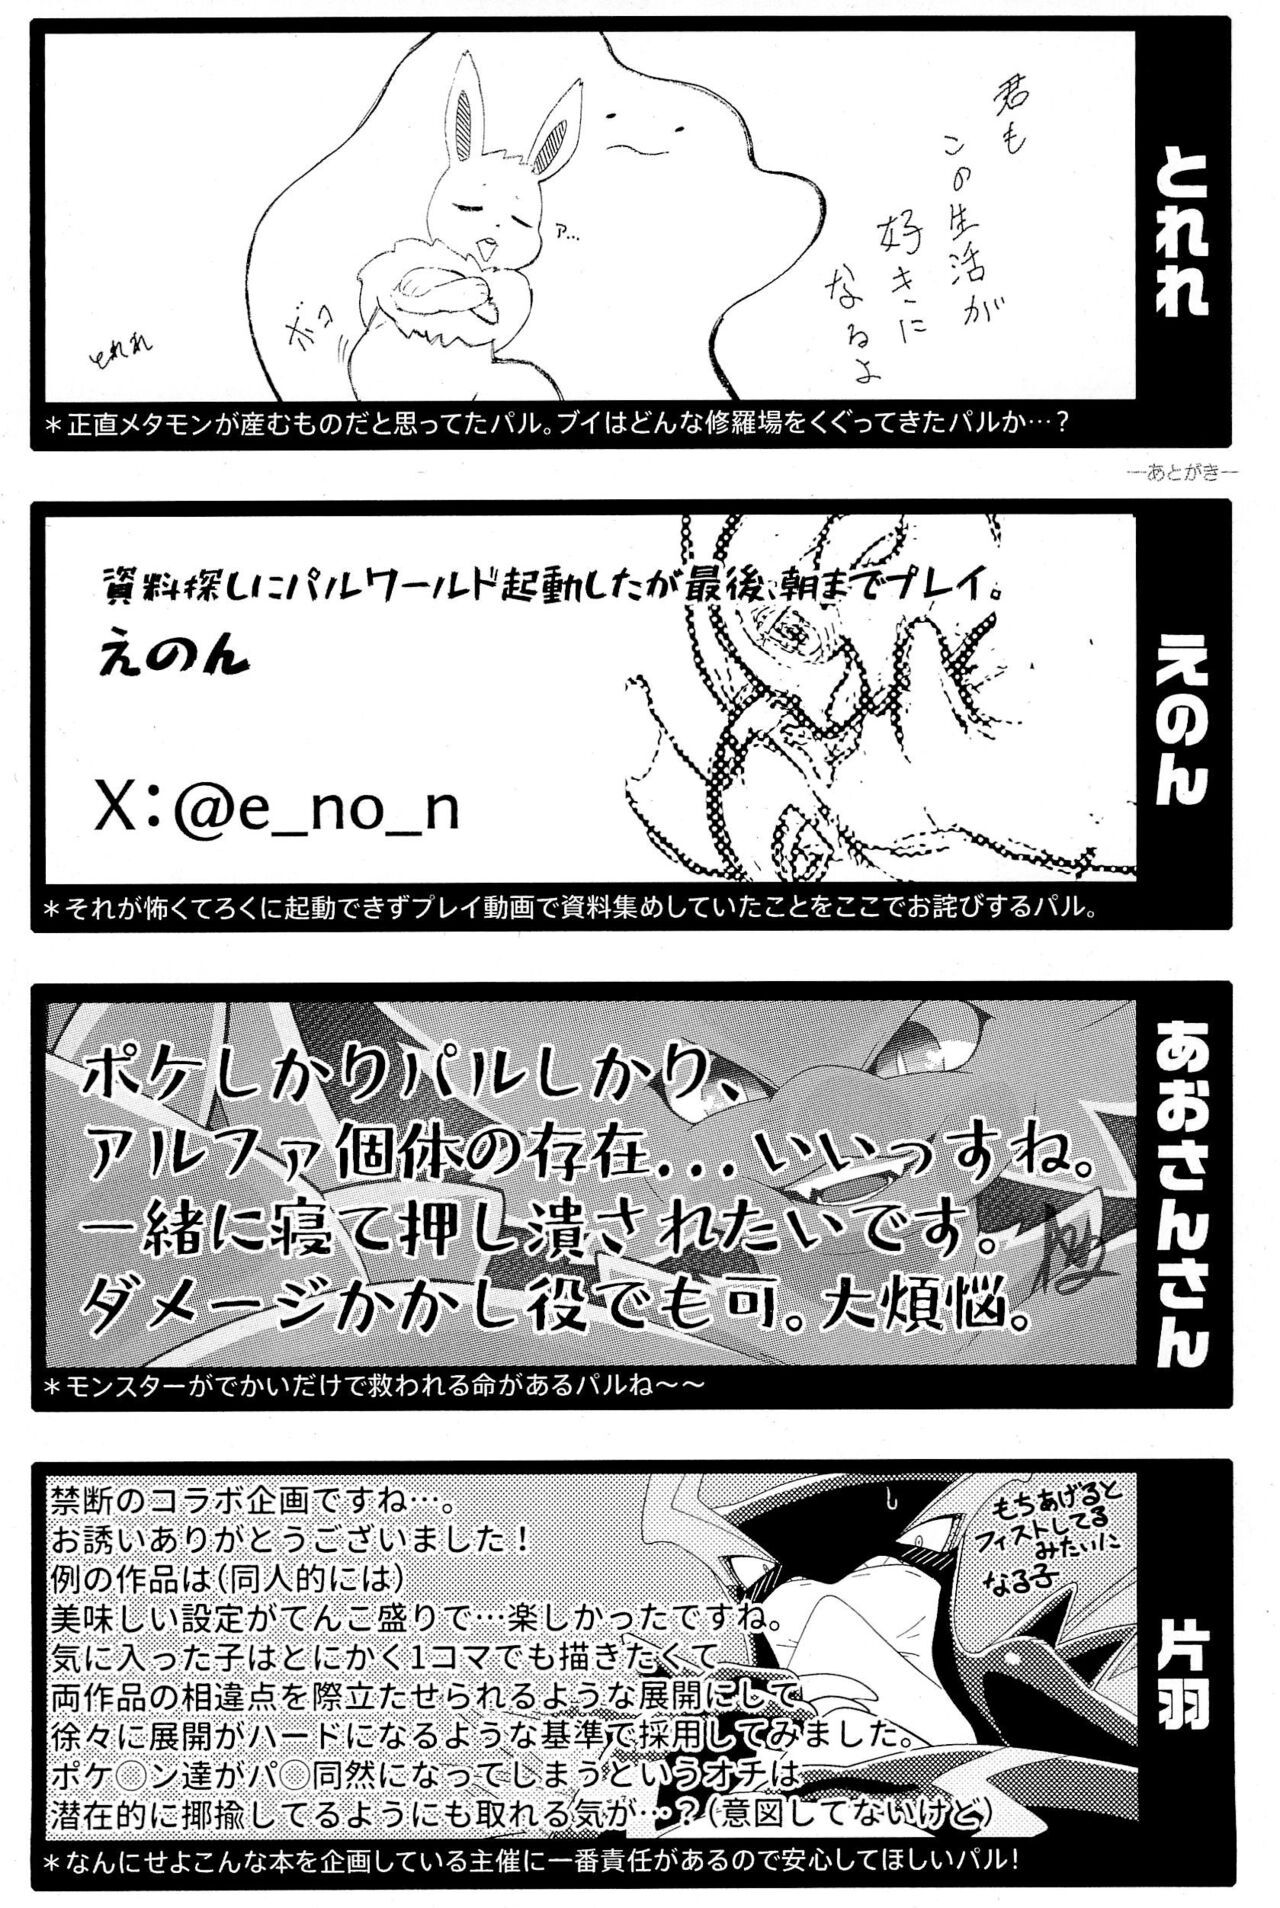 とれれ
君も
この生活が
好きに
なるよ
ア…
ボコ
とれれ
＊正直メタモンが産むものだと思ってたパル。ブイはどんな修羅場をくぐってきたパルか…？
―あとがき―
えのん
資料探しにパルワールド起動したが最後、朝までプレイ。
えのん
X：@e_no_n
＊それが怖くてろくに起動できずプレイ動画で資料集めしていたことをここでお詫びするパル。
あおさんさん
ポケしかりパルしかり、
アルファ個体の存在...いいっすね。
一緒に寝て押し潰されたいです。
ダメージかかし役でも可。大煩悩。
＊モンスターがでかいだけで救われる命があるパルね～～
片羽
禁断のコラボ企画ですね…。
お誘いありがとうございました！
例の作品は（同人的には）
美味しい設定がてんこ盛りで…楽しかったですね。
気に入った子はとにかく1コマでも描きたくて
両作品の相違点を際立たせられるような展開にして
徐々に展開がハードになるような基準で採用してみました。
ポケ◉ン達がパ◉同然になってしまうというオチは
潜在的に揶揄してるようにも取れる気が…？（意図してないけど）
もちあげると
フィストしてる
みたいに
なる子
＊なんにせよこんな本を企画している主催に一番責任があるので安心してほしいパル！